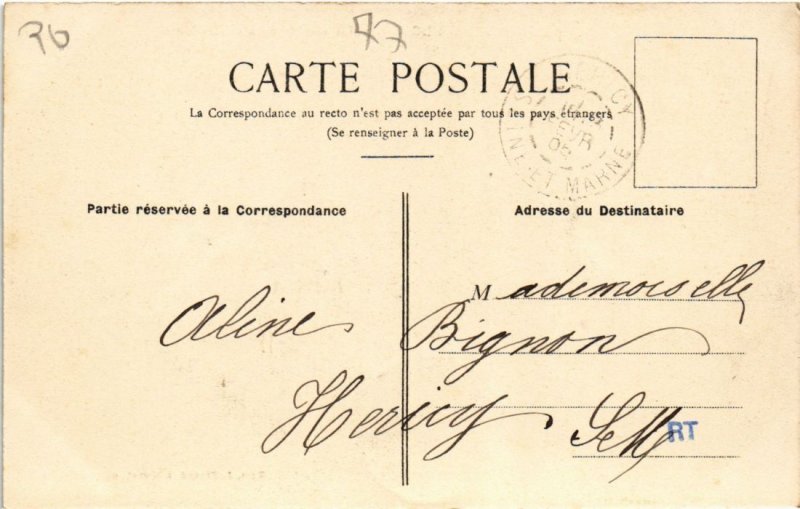 36 77
CARTE POSTALE
La Correspondance au recto n'est pas acceptée par tous les pays étrangers
(Se renseigner à la Poste)
HERICY
FEVR
05
SEINE-ET-MARNE
Partie réservée à la Correspondance
Adresse du Destinataire
Aline
Mademoiselle
Bignon
Hericy S et M
RT